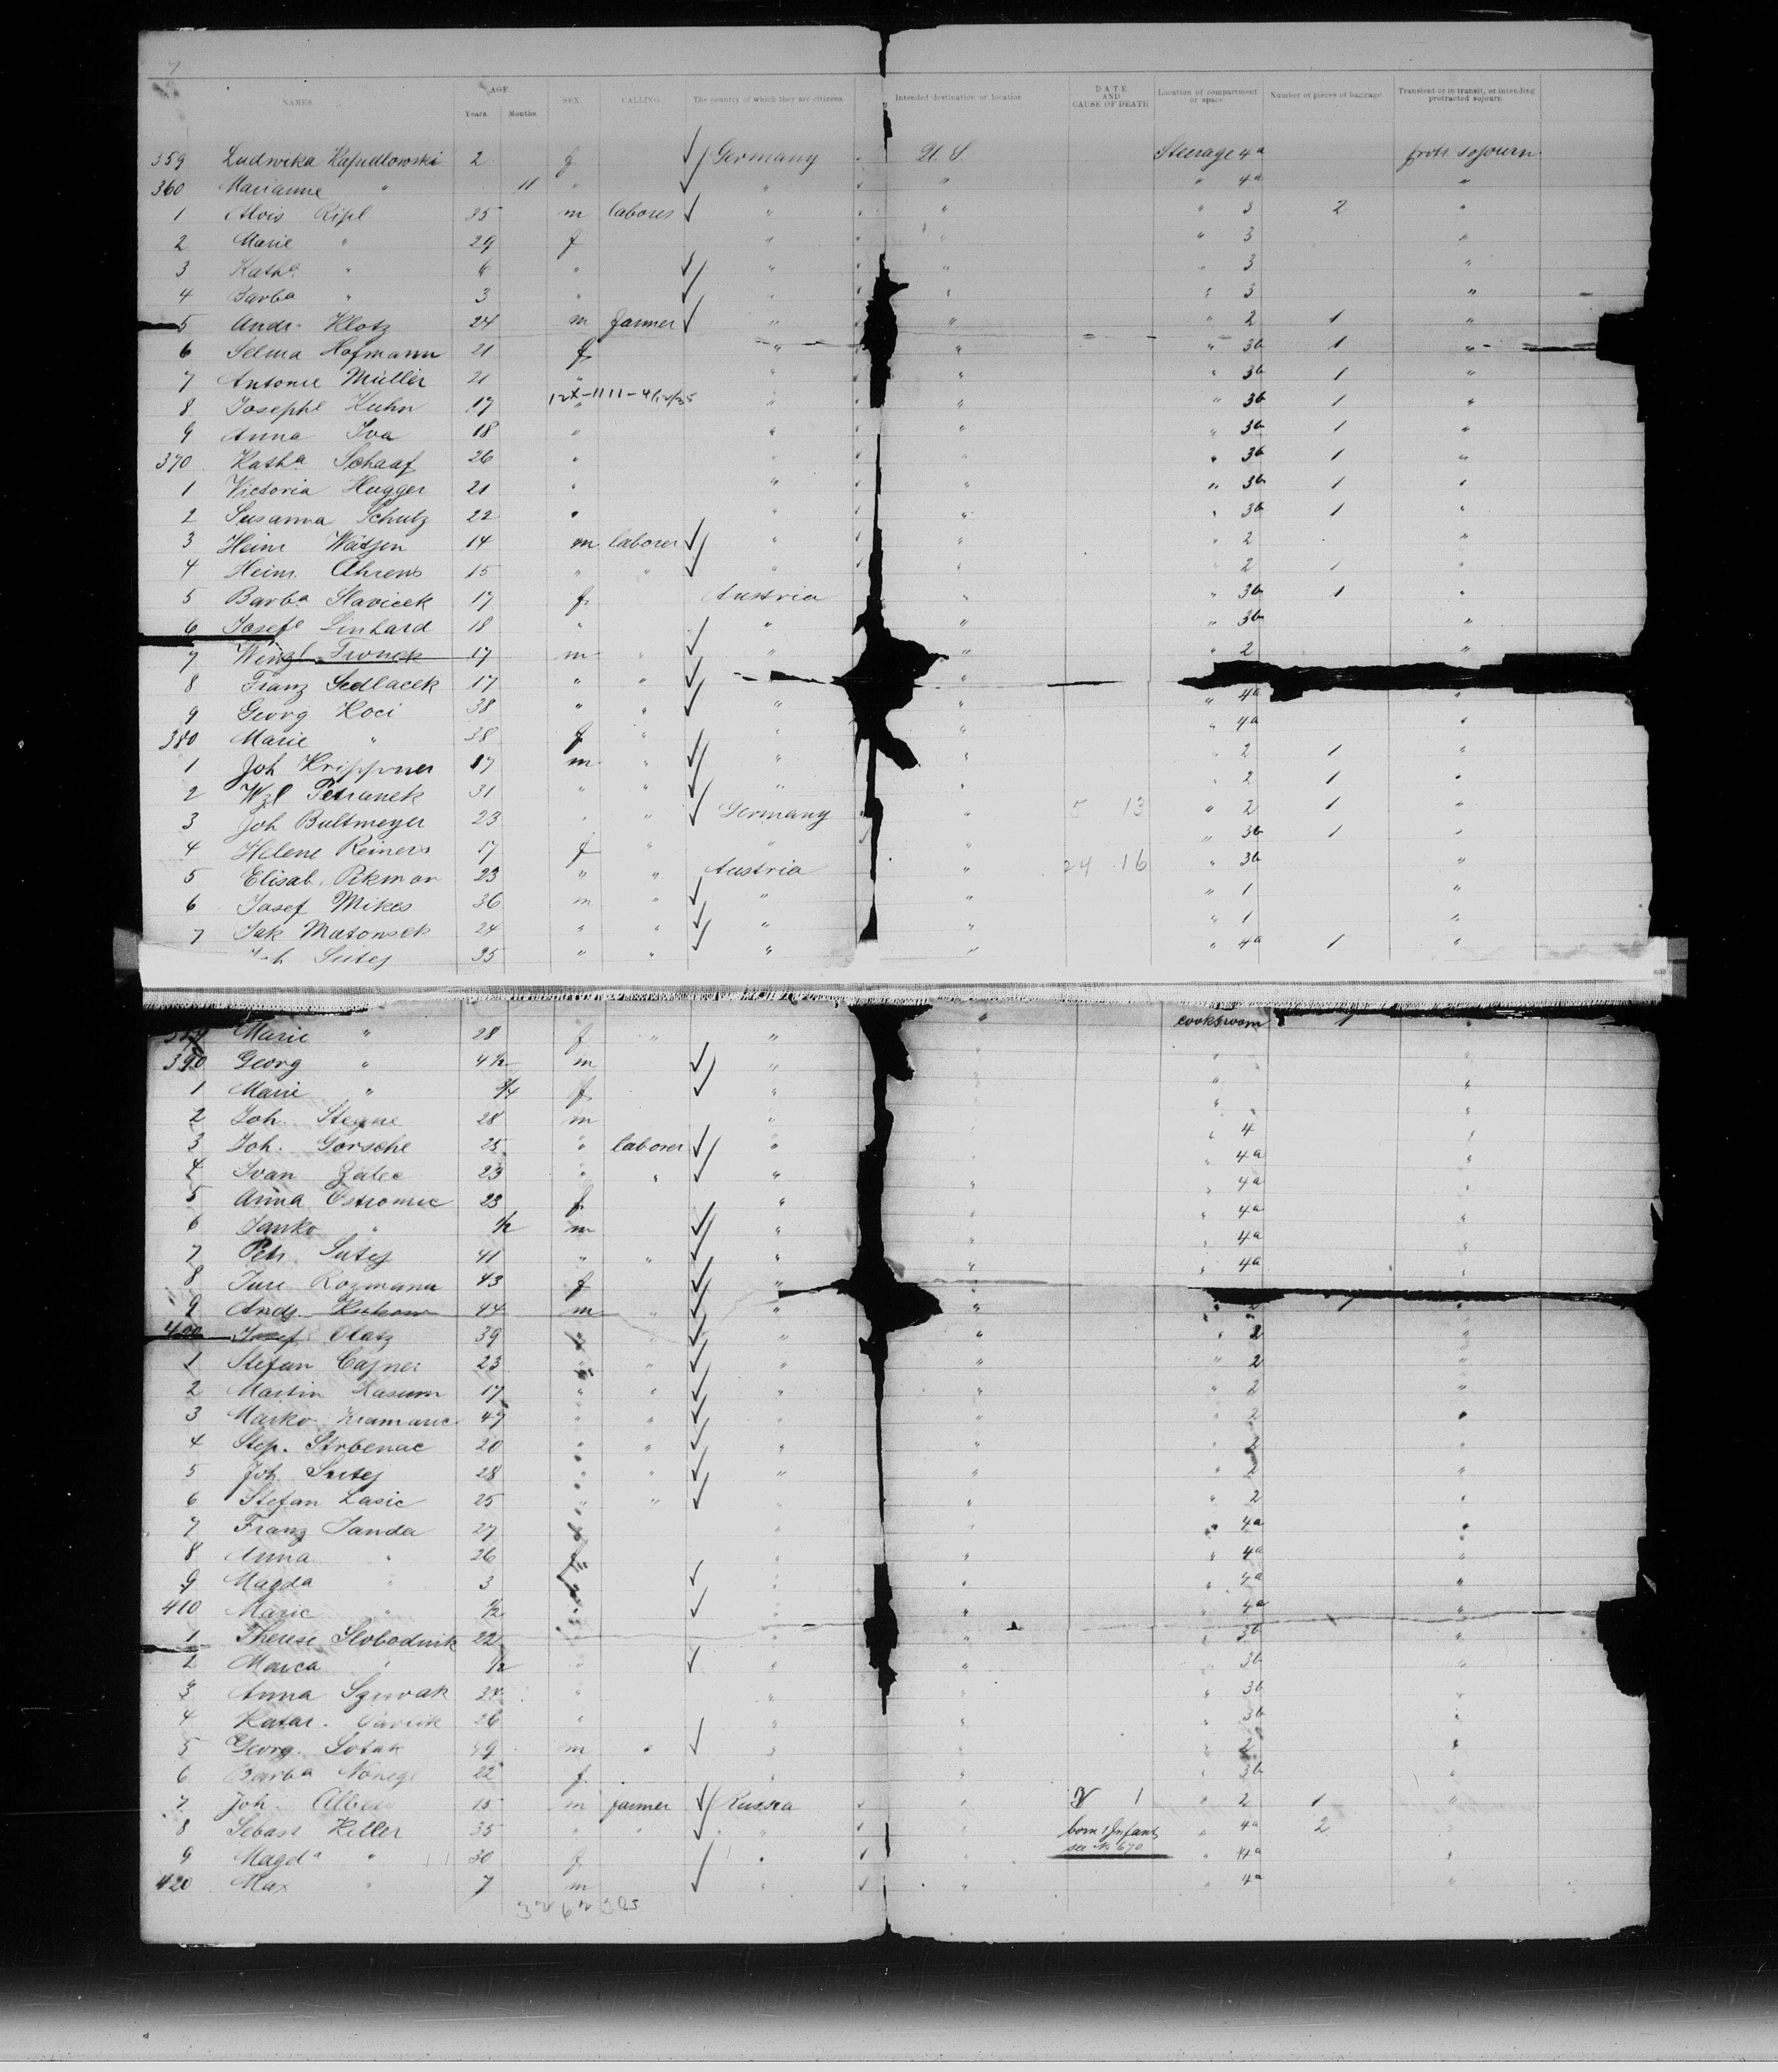 7
NAMES. AGE Years. Months. SEX. CALLING. The country of which they are citizens. Intended destination or location. DATE AND CAUSE OF DEATH Location of compartment or space. Number of pieces of baggage. Transient or in transit, or intending protracted sojourn.
359 Ludwika 2 f Germany U. S Steerage 4a sojourn
360 Marianne " 11 " " " " 4a "
1 Alois Ripl 35 m laborer " " " 3 2 "
2 Marie " 29 f " " " 3 "
3 Katha " 6 " " " " 3 "
4 Barba " 3 " " " " 3 "
5 Andr. Klotz 24 m farmer " " " 2 1 "
6 Selma Hofmann 21 f " " " 3b 1 "
7 Antonie Müller 21 " " " " 3b 1 "
8 Josephe Kuhn 17 " " " " 3b 1 "
9 Anna Iva 18 " " " " 3b 1 "
370 Katha Schaaf 26 " " " " 3b 1 "
1 Victoria Hugger 21 " " " " 3b 1 "
2 Susanna Schulz 22 " " " " 3b 1 "
3 Heinr Wätjen 14 m laborer " " " 2 "
4 Heinr. Ahrens 15 " " " " " 2 1 "
5 Barba Slavicek 17 f Austria " " 3b 1 "
6 Josefe Linhard 18 " " " " 3b "
7 Wenzl Tronek 17 m " " " " 2 "
8 Franz Sedlacek 17 " " "
9 Georg Koci 38 " " " " " 4a "
380 Marie " 38 f " " " " 4a "
1 Joh Krippner 17 m " " " " 2 1 "
2 Wzl Petranek 31 " " " " " 2 1 "
3 Joh Bultmeyer 23 " " Germany " 5 13 " 2 1 "
4 Helene Reiners 17 f " " " 3b 1 "
5 Elisab. Pikmar 23 " " Austria " 24 16 " 3b "
6 Josef Mikes 36 m " " " 1 "
7 Jak Matousek 24 " " " " " 1 "
Joh Sutej 35 " " " " " 4a 1 "
389 Marie " 28 f " " " cooksroom 1 "
390 Georg " 4½ m " " " "
1 Marie " ¾ f " " " "
2 Joh. Stegne 28 m " " " "
3 Joh. Gorsche 25 " laborer " " " 4 "
4 Ivan Zalec 23 " " " " " 4a "
5 Anna Ostromic 23 f " " " 4a "
6 Janko " ½ m " " " 4a "
7 Petr. Sutej 41 " " " " " 4a "
8 Jure Rozmann 43 f " " " 4a "
9 Andj. 44 m " " " " 2 1 "
400 Josef Olatz 39 " " " " " 2 "
1 Stefan Cajner 23 " " " " " 2 "
2 Martin Kasum 17 " " " " " 2 "
3 Marko Kramaric 47 " " " " " 2 "
4 Step. Strbenac 20 " " " " " 2 "
5 Joh Sutej 28 " " " " " 2 "
6 Stefan Lasic 25 " " " " " 2 "
7 Franz Janda 27 " " " 4a "
8 Anna " 26 f " " " 4a "
9 Magda " 3 " " " " 4a "
410 Marie " ½ " " " " 4a "
1 Therese Slobodnik 22 " " " " 3b "
2 Marca " ½ " " " " 3b "
3 Anna 24 " " " " 3b "
4 Katar. 26 " " " " 3b "
5 Georg. Sotak m " " " " 2 "
6 Barba 22 f " " " 3b "
7 Joh. 15 m farmer Russia " 1 " 2 1 "
8 Sebast Keller 35 " " " " born 1 Infant, " 4a 2 "
see No 670
9 Magda " 30 f " " " 4a "
420 Max " 7 m " " " 4a "